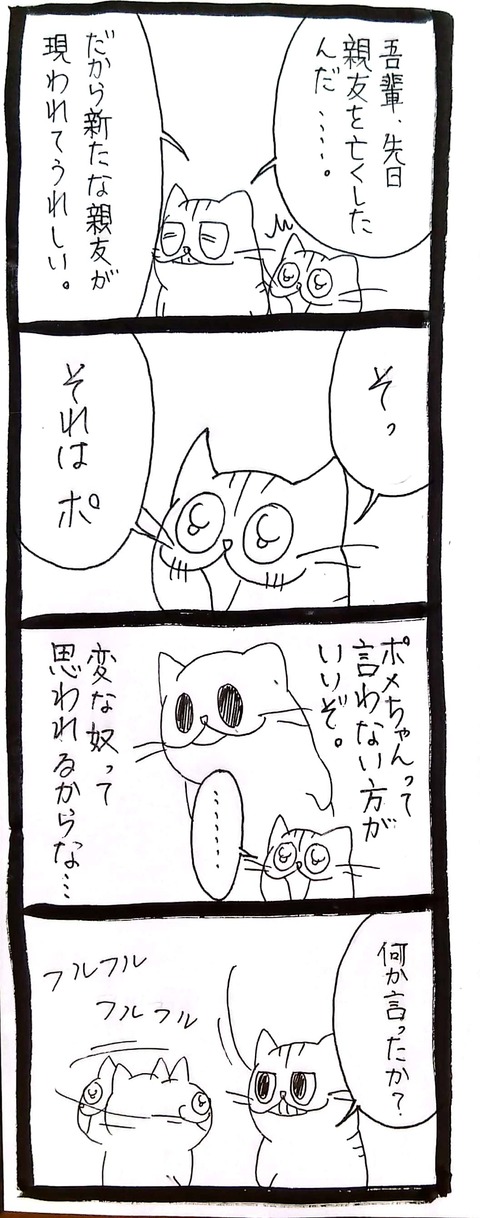 吾輩、先日
親友を亡くした
んだ……。
だから新たな親友が
現われてうれしい。
そっ
それはポ
ポメちゃんって
言わない方が
いいぞ。
………
変な奴って
思われるからな…
何か言ったか？
フルフル
フルフル